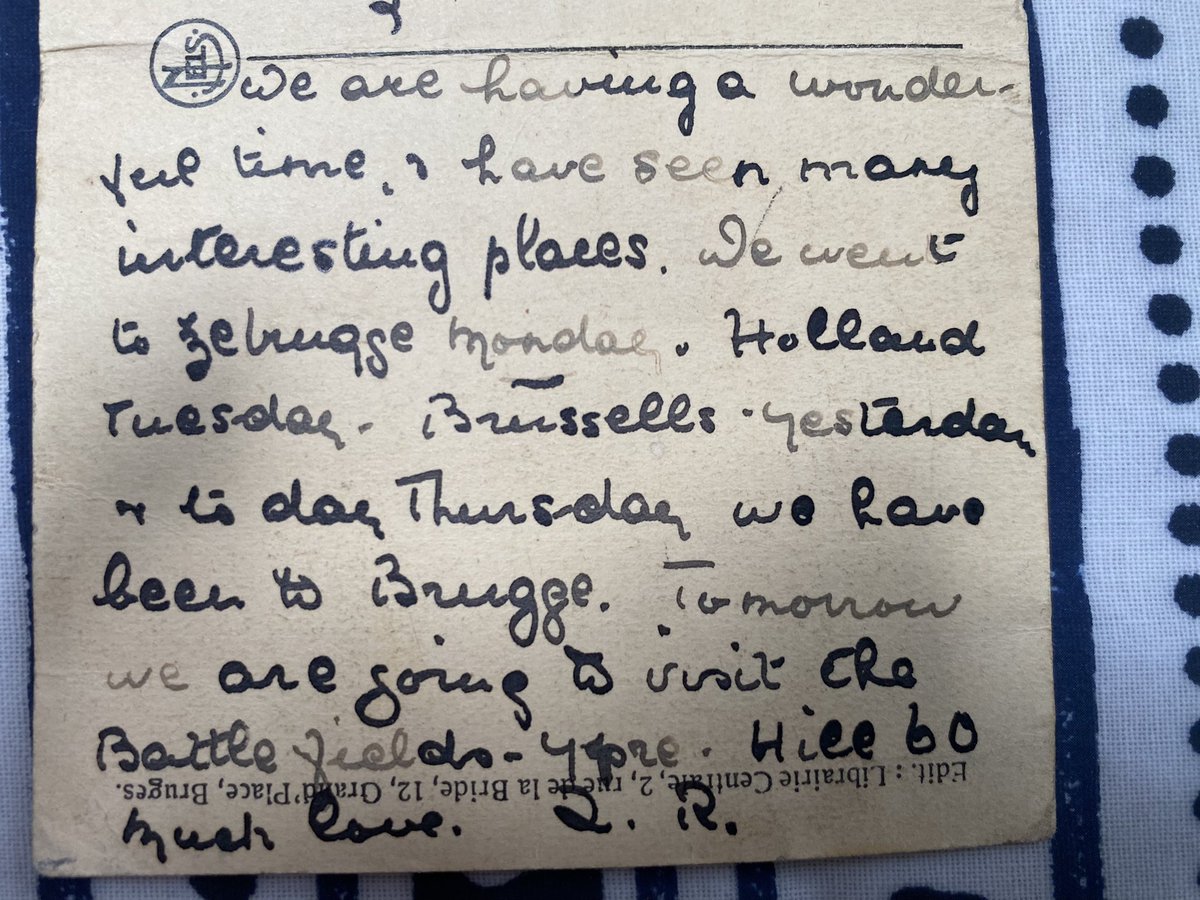 NELS
We are having a wonder-
ful time, & have seen many
interesting places. We went
to Zebrugge Monday. Holland
Tuesday. Brussells yesterday
& to day Thursday we have
been to Brugge. Tomorrow
we are going to visit the
Battle fields - Ypre. Hill 60
Edit. : Librairie Centrale, 2, rue de la Bride, 12, Grand'Place, Bruges.
Much love. L. R.